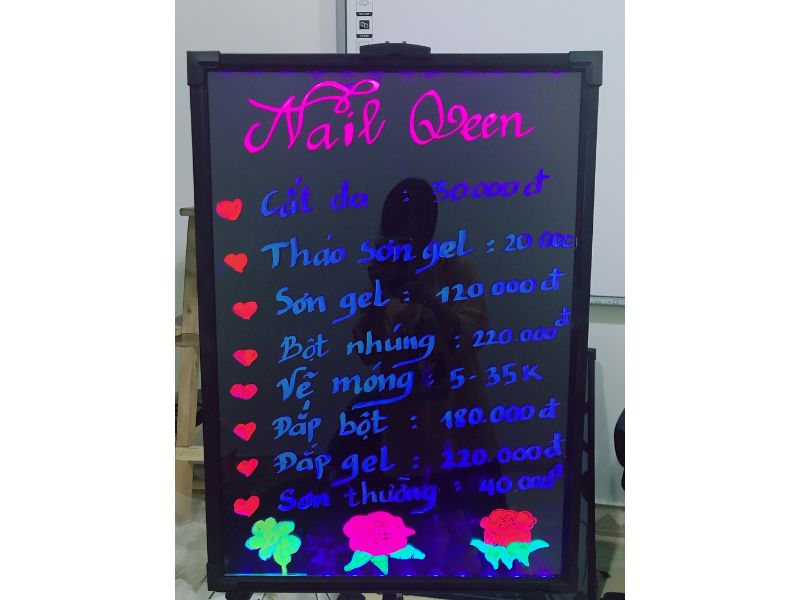 Nail Qeen
Cắt da : 30.000 đ
Tháo Sơn gel : 20 000
Sơn gel : 120.000 đ
Bột nhúng : 220.000 đ
Vẽ móng : 5 - 35K
Đắp bột : 180.000 đ
Đắp gel : 220.000 đ
Sơn thường : 40.000 đ